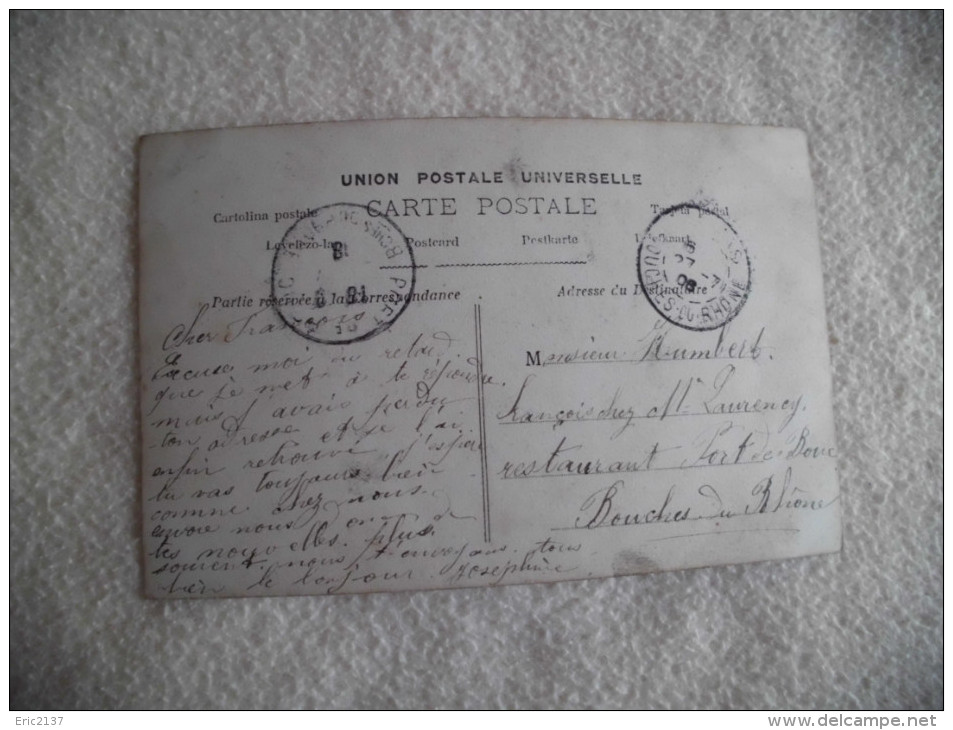 UNION POSTALE UNIVERSELLE
CARTE POSTALE
Cartolina postale
Tarjeta postal
Levelezo-lap
Postcard
Postkarte
Briefkaart
Partie réservée à la Correspondance
Adresse du Destinataire
BOUCHES-DU-RHONE
Cher François
Excuse moi du retard
que je met à te répondre
mais j'avais perdu
ton adresse et je l'ai
enfin retrouvé j'espère
tu vas toujours bien
comme chez nous
envoie nous
tes nouvelles plus
souvent nous t'envoyons tous
bien le bonjour Joséphine
Monsieur Humbert
François chez Mr Laurency
restaurant Port de Bouc
Bouches du Rhône
Eric2137
http://www.delcampe.net